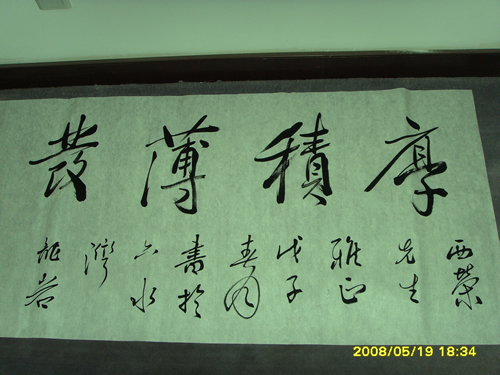 厚積薄發
西榮
先生
雅正
戊子
春月
書於
六水
灣
2008/05/19 18:34